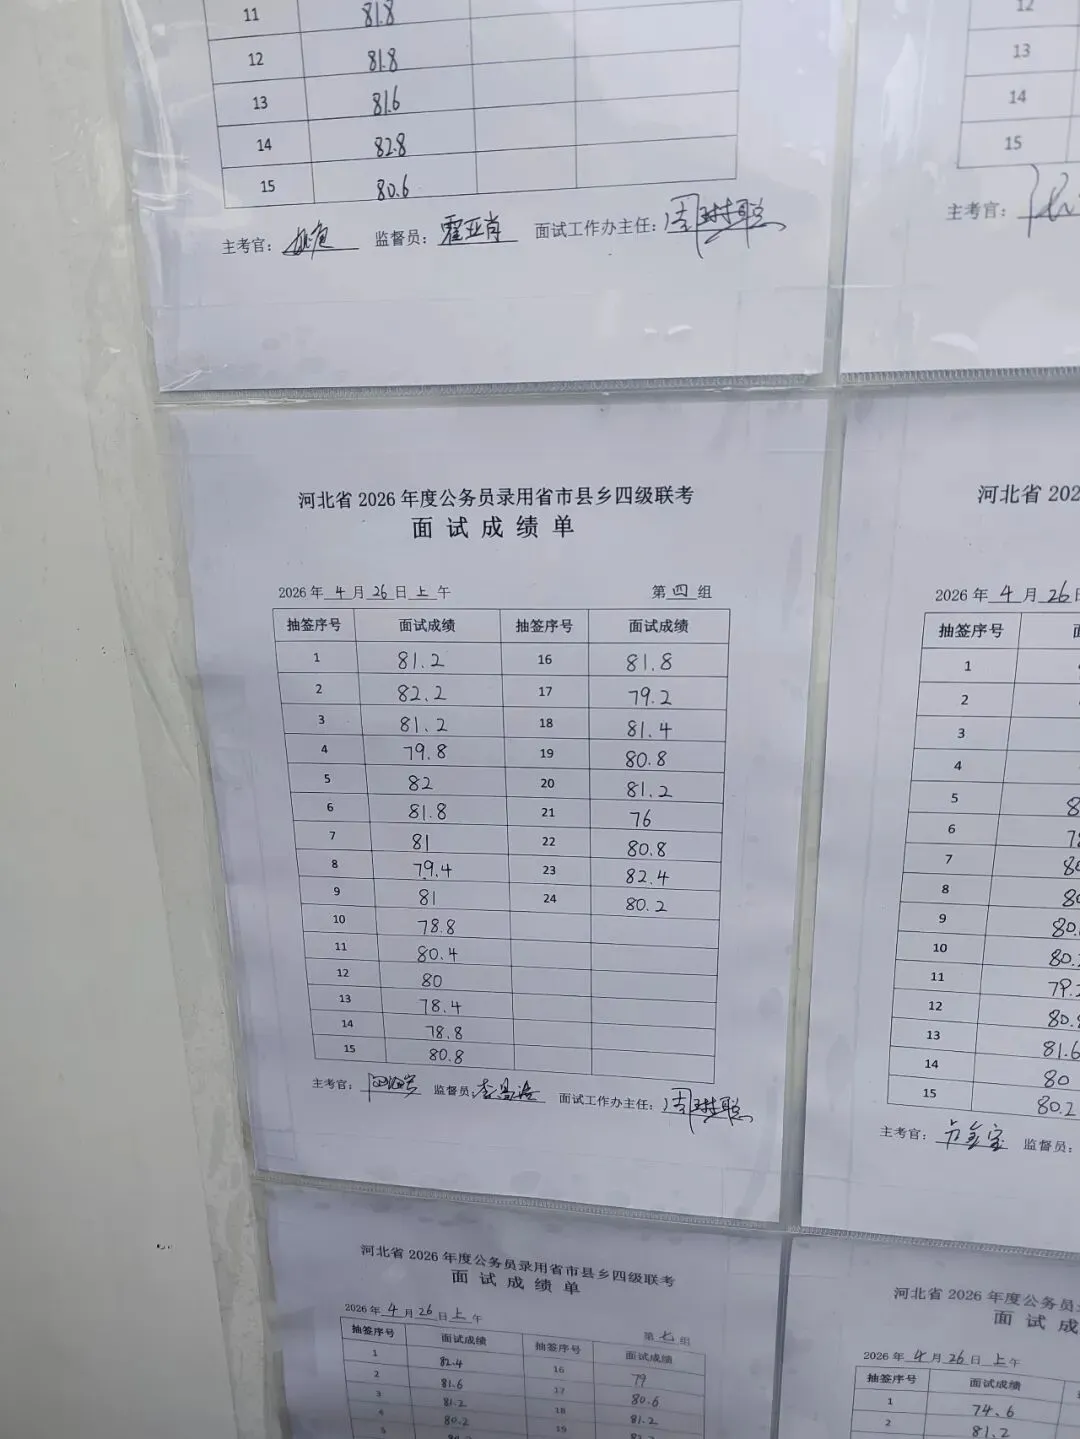 11 81.8
12 81.8
13 81.6
14 82.8
15 80.6
主考官： 监督员：霍亚肖 面试工作办主任：周琳聪
12
13
14
15
主考官：
河北省 2026 年度公务员录用省市县乡四级联考
面试成绩单
2026 年 4 月 26 日 上 午 第 四 组
抽签序号 面试成绩 抽签序号 面试成绩
1 81.2 16 81.8
2 82.2 17 79.2
3 81.2 18 81.4
4 79.8 19 80.8
5 82 20 81.2
6 81.8 21 76
7 81 22 80.8
8 79.4 23 82.4
9 81 24 80.2
10 78.8
11 80.4
12 80
13 78.4
14 78.8
15 80.8
主考官： 监督员： 面试工作办主任：周琳聪
河北省 202
2026 年 4 月 26
抽签序号
1
2
3
4
5
6
7
8
9
10
11
12
13 81.6
14 80
15 80.2
主考官： 监督员：
河北省 2026 年度公务员录用省市县乡四级联考
面试成绩单
2026 年 4 月 26 日 上 午 第 七 组
抽签序号 面试成绩 抽签序号 面试成绩
1 82.4 16 79
2 81.6 17 80.6
3 81.2 18 81.2
4 80.2 19
河北省 2026 年度公务员
面试成
2026 年 4 月 26 日 上 午
抽签序号 面试成绩
1 74.6
2 81.2